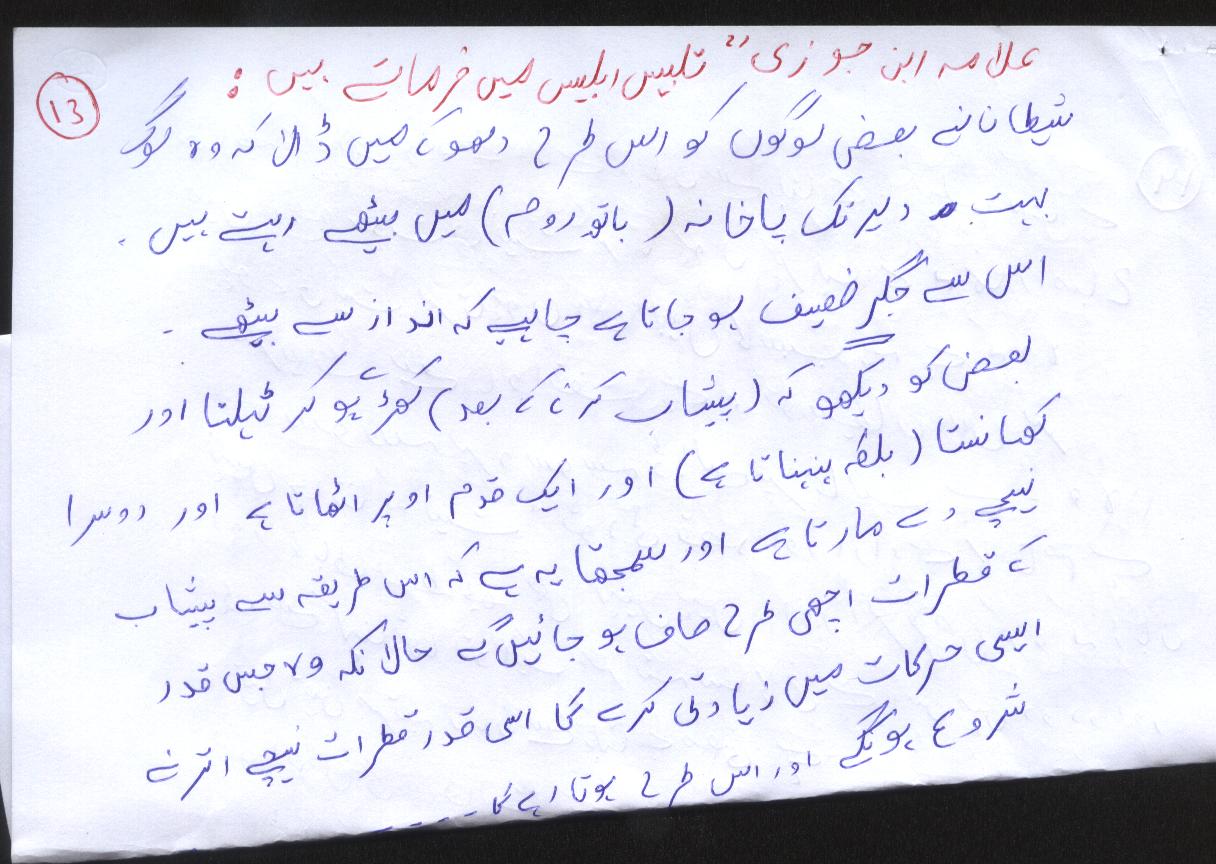 13
علامہ ابن جوزی" تلبیس ابلیس میں فرماتے ہیں :
شیطان نے بعض لوگوں کو اس طرح دھوکے میں ڈالا کہ وہ لوگ
بہت دیر تک پاخانہ (باتھ روم) میں بیٹھے رہتے ہیں ۔
اس سے جگر ضعیف ہو جاتا ہے چاہیے کہ انداز سے بیٹھے ۔
بعض کو دیکھو کہ (پیشاب کرنے کے بعد) کھڑے ہو کر ٹہلتا اور
کھانستا (بلکہ ہنہناتا ہے) اور ایک قدم اوپر اٹھاتا ہے اور دوسرا
نیچے دے مارتا ہے اور سمجھتا یہ ہے کہ اس طریقہ سے پیشاب
کے قطرات اچھی طرح صاف ہو جائیں گے حالانکہ وہ جس قدر
ایسی حرکات میں زیادتی کرے گا اسی قدر قطرات نیچے اترنے
شروع ہونگے اور اس طرح ہوتا رہے گا-----